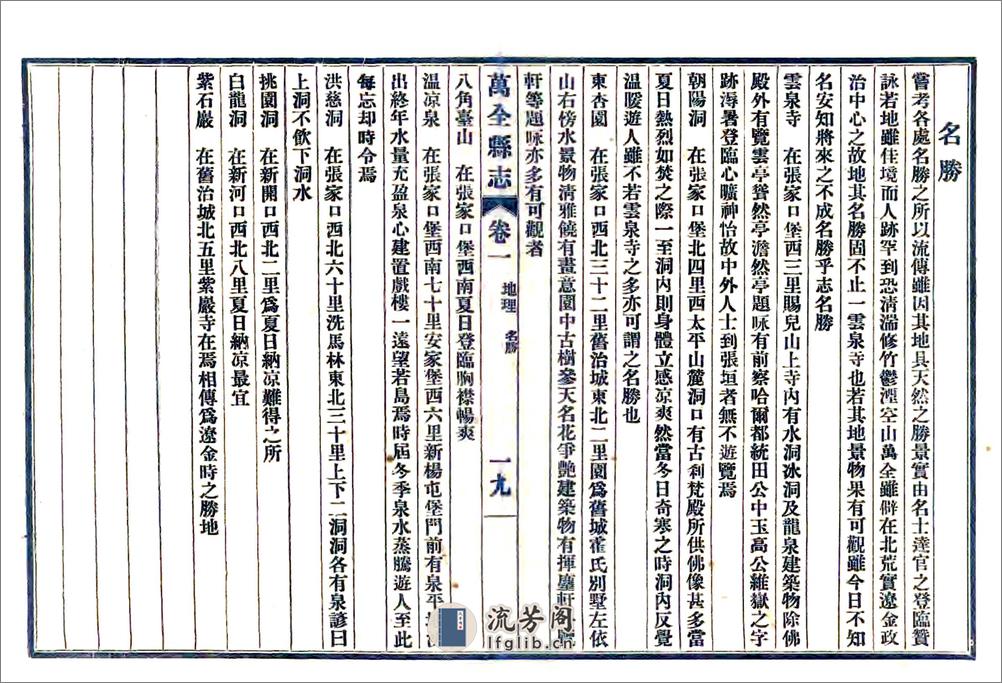 名勝
嘗考各處名勝之所以流傳雖因其地具天然之勝景實由名士達官之登臨贊
詠若地雖佳境而人跡罕到恐清湍修竹鬱湮空山萬全雖僻在北荒實遼金政
治中心之故地其名勝固不止一雲泉寺也若其地景物果有可觀雖今日不知
名安知將來之不成名勝乎志名勝
雲泉寺 在張家口堡西三里賜兒山上寺內有水洞冰洞及龍泉建築物除佛
殿外有覽雲亭聳然亭澹然亭題咏有前察哈爾都統田公中玉高公維嶽之字
跡溽暑登臨心曠神怡故中外人士到張垣者無不遊覽焉
朝陽洞 在張家口堡北四里西太平山麓洞口有古刹梵殿所供佛像甚多當
夏日熱烈如焚之際一至洞內則身體立感凉爽然當冬日奇寒之時洞內反覺
溫暖遊人雖不若雲泉寺之多亦可謂之名勝也
東杏園 在張家口西北三十二里舊治城東北二里園爲舊城霍氏別墅左依
山右傍水景物清雅饒有畫意園中古樹參天名花爭艷建築物有揮塵軒
軒等題咏亦多有可觀者
萬全縣志 卷一 地理 名勝 一九
八角臺山 在張家口堡西南夏日登臨胸襟暢爽
溫凉泉 在張家口堡西南七十里安家堡西六里新楊屯堡門前有泉平
出終年水量充盈泉心建置戲樓一遠望若島焉時屆冬季泉水蒸騰遊人至此
每忘却時令焉
洪慈洞 在張家口西北六十里洗馬林東北三十里上下二洞洞各有泉諺曰
上洞不飲下洞水
挑園洞 在新開口西北二里爲夏日納凉難得之所
白龍洞 在新河口西北八里夏日納凉最宜
紫石巖 在舊治城北五里紫巖寺在焉相傳爲遼金時之勝地
流芳阁
lfglib.cn